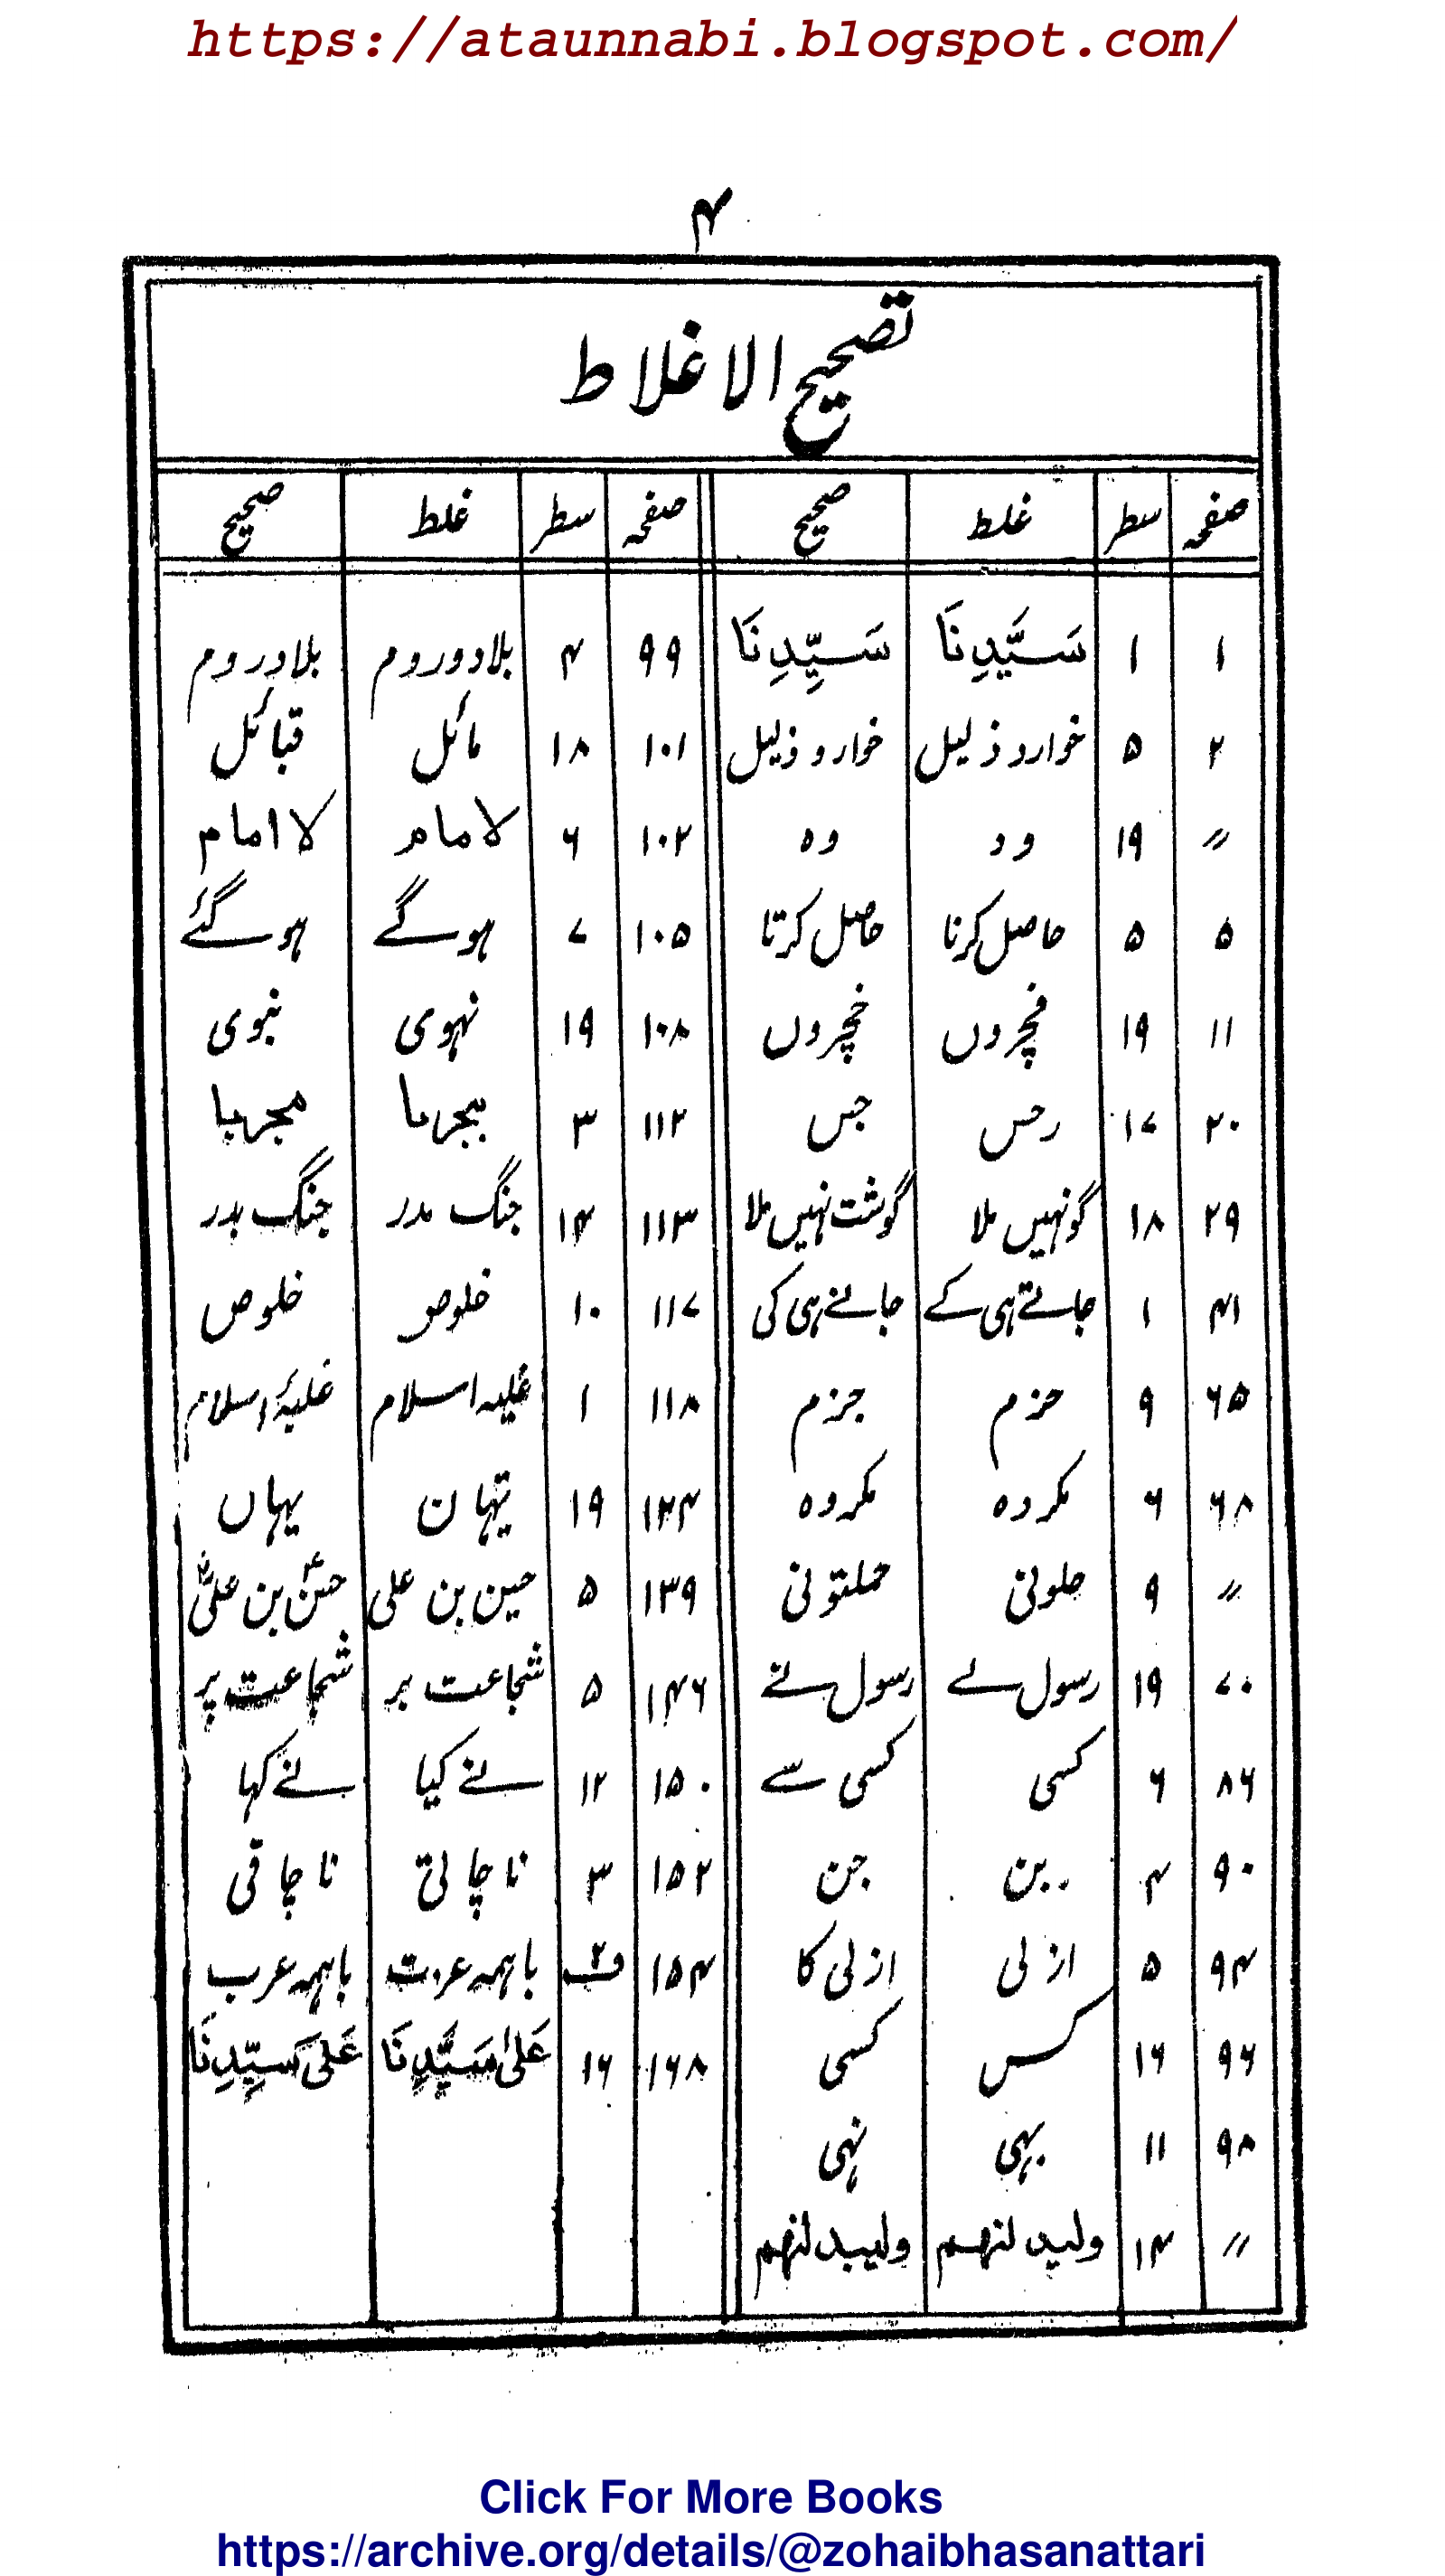 https://ataunnabi.blogspot.com/
۴
تصحیح الاغلاط
صفحہ سطر غلط صحیح صفحہ سطر غلط صحیح
۱ ۱ سَیَّدِنَا سَیِّدِنَا ۹۹ ۴ بلادوروم بلادروم
۲ ۵ خوارد ذلیل خوار و ذلیل ۱۰۱ ۱۸ مائل قبائل
〃 ۱۹ ود وہ ۱۰۲ ۶ لامام لا امام
۵ ۵ حاصل کرنا حاصل کرتا ۱۰۵ ۷ ہوگے ہوگئے
۱۱ ۱۹ فچروں خچروں ۱۰۸ ۱۹ نہوی نبوی
۲۰ ۱۷ رحس جس ۱۱۲ ۳ مجربا
۲۹ ۱۸ گونہیں ملا گوشت نہیں ملا ۱۱۳ ۱۴ جنگ مدر جنگ بدر
۴۱ ۱ جانتے ہی کے جاننے ہی کی ۱۱۷ ۱۰ خلوص خلوص
۶۵ ۹ حزم جزم ۱۱۸ ۱ غلیہ اسلام غلبۂ اسلام
۶۸ ۶ مکردہ مکروہ ۱۲۴ ۱۹ تہان یہاں
〃 ۹ حلونی حملتونی ۱۳۹ ۵ حسین بن علی حسنؓ بن علیؓ
۷۰ ۱۹ رسول لے رسول نے ۱۴۶ ۵ شجاعت بر شجاعت پر
۸۶ ۶ کسی کسی سے ۱۵۰ ۱۲ نے کیا نے کہا
۹۰ ۴ بن جن ۱۵۲ ۳ ناچالق ناچاقی
۹۴ ۵ از لی از لی کا ۱۵۴ ف۲ باہمہ عرت باہمہ عرب
۹۶ ۱۶ کس کسی ۱۶۸ ۱۶ عَلیٰ سَیَّدِنَا عَلیٰ سَیِّدِنَا
۹۸ ۱۱ بہی نہی
〃 ۱۴ ولید لنھم ولیبدلنھم
Click For More Books
https://archive.org/details/@zohaibhasanattari